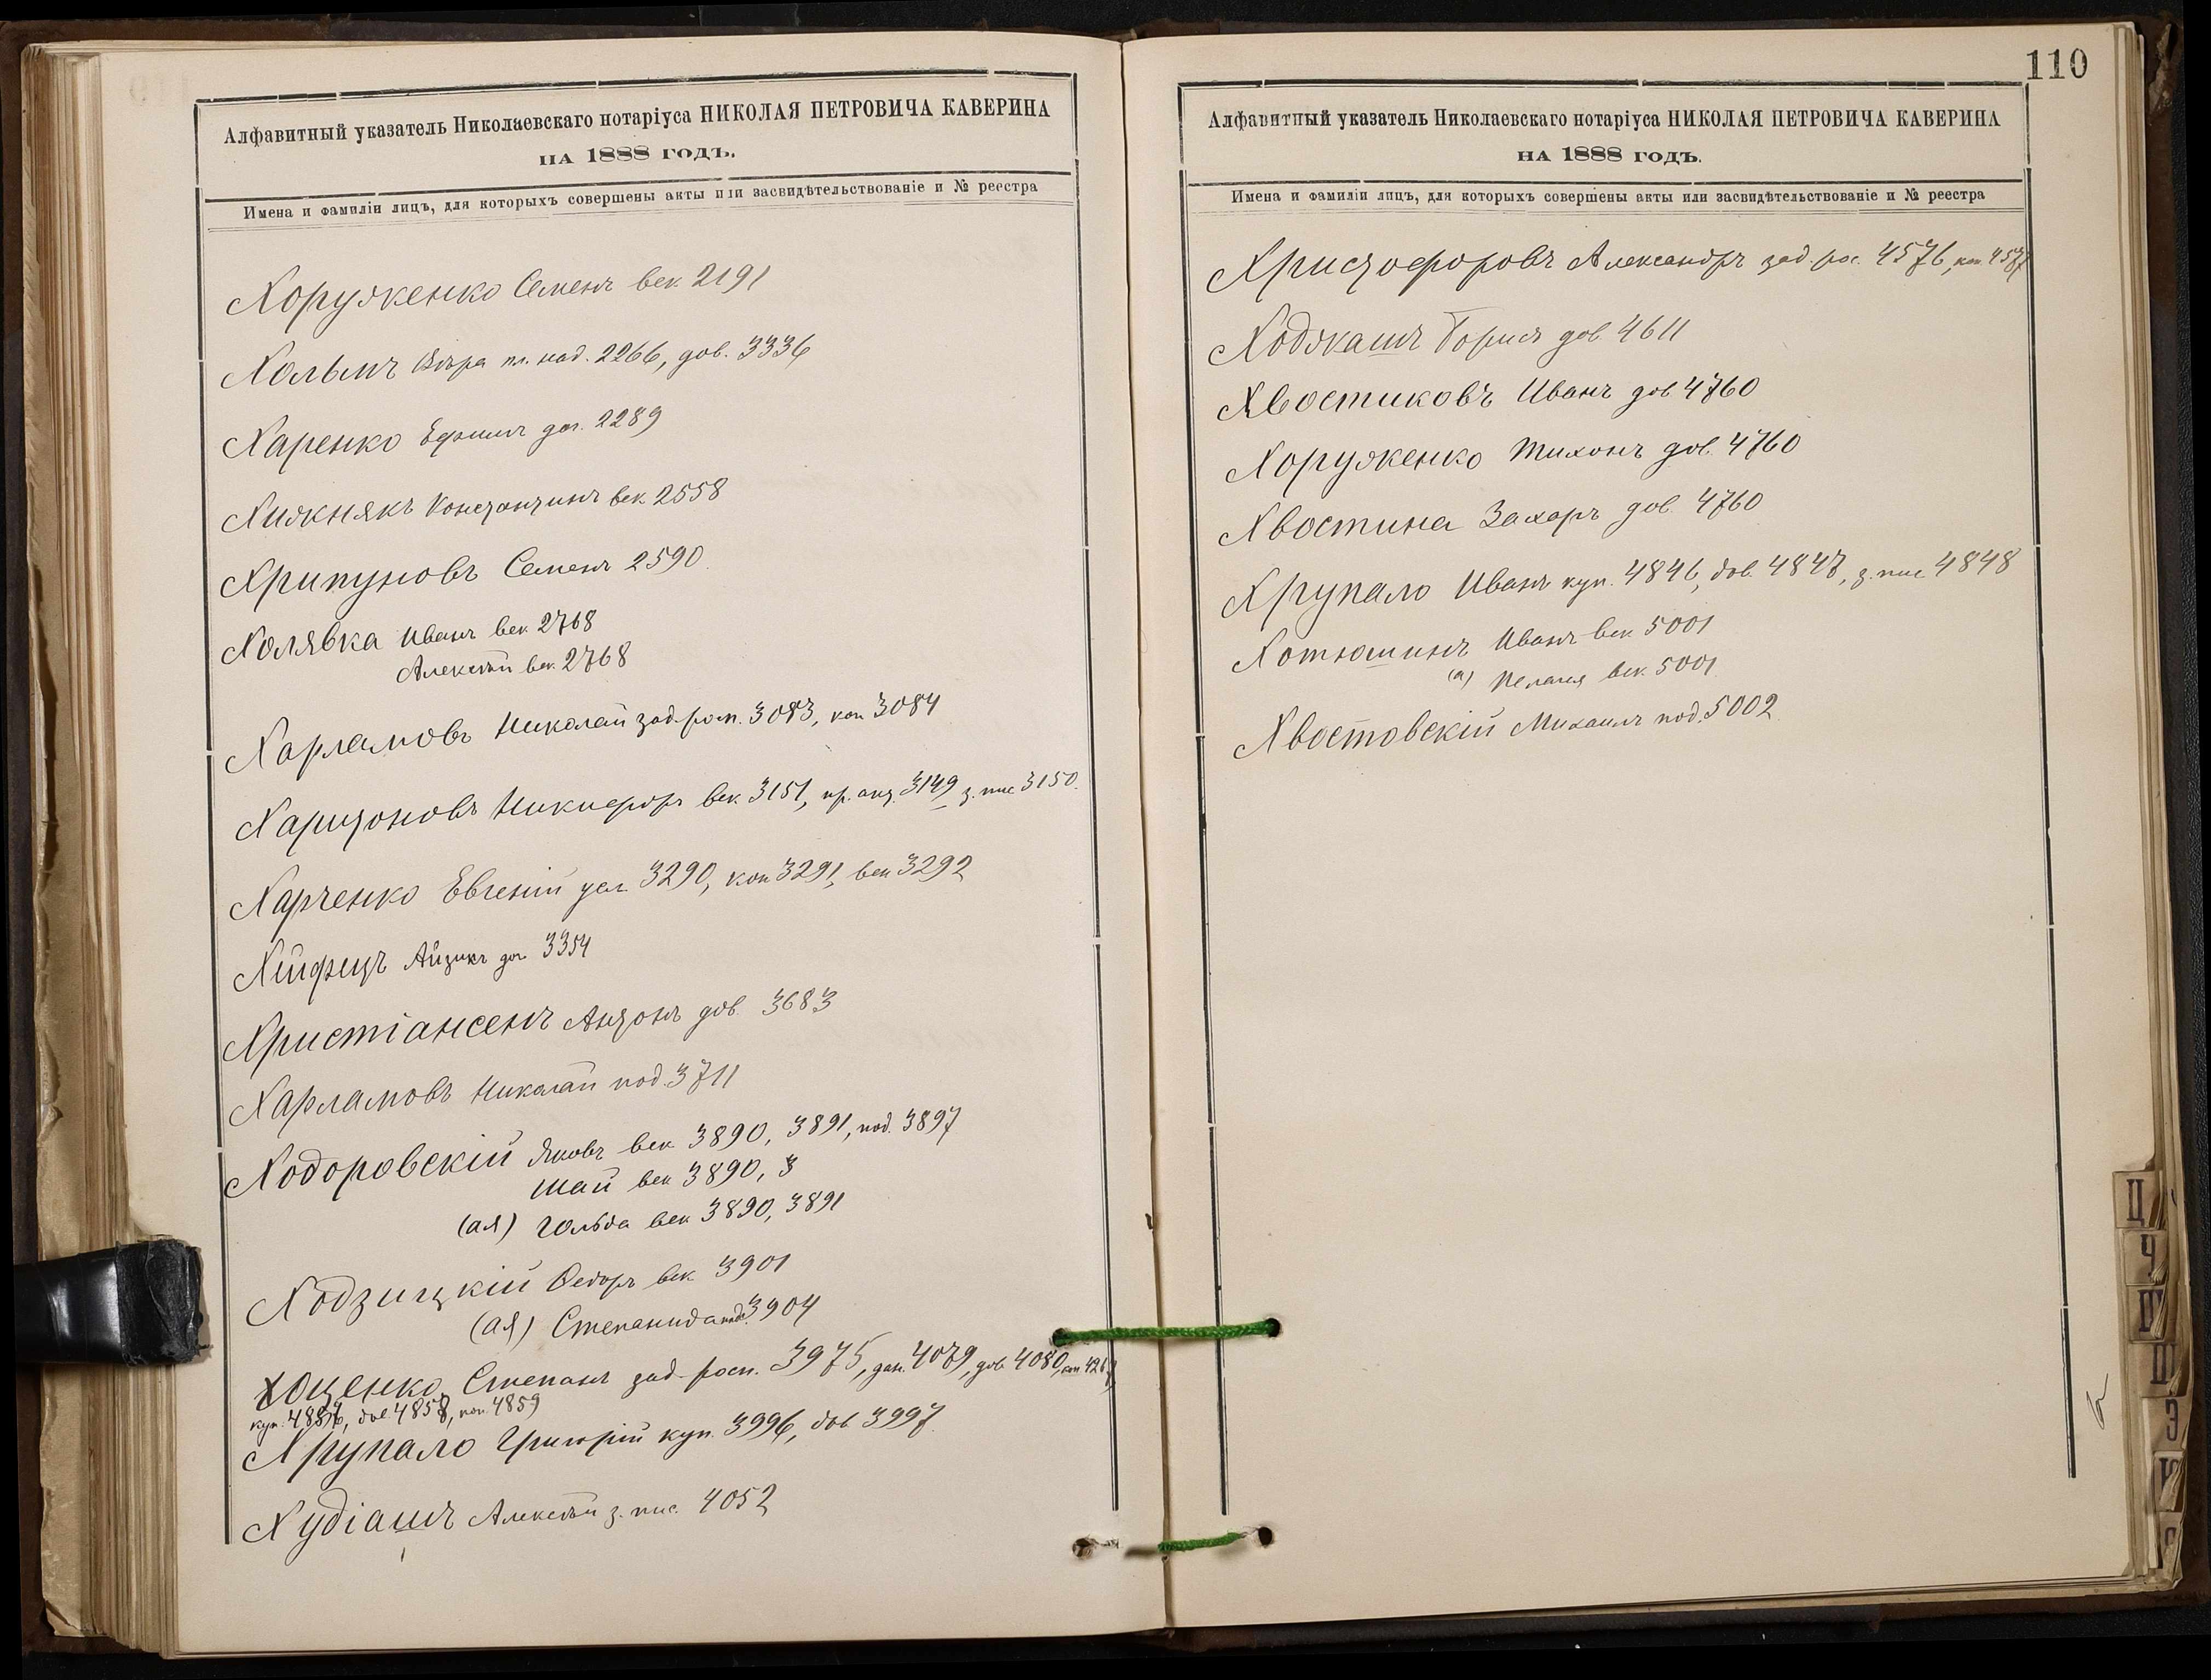 Алфавитный указатель Николаевскаго нотаріуса НИКОЛАЯ ПЕТРОВИЧА КАВЕРИНА
НА 1888 ГОДЪ.
Имена и фамиліи лицъ, для которыхъ совершены акты или засвидѣтельствованіе и № реестра
Хоруженко Семенъ век 2191
Хольмъ Вѣра пл. над. 2266, дов. 3336
Харенко Ефимъ дог. 2289
Хижнякъ Константинъ век 2558
Хрипуновъ Семенъ 2590
Холявка Иванъ век 2768
Алексѣй век 2768
Харламовъ Николай зад. росп. 3083, коп 3084
Харитоновъ Никифоръ век. 3151, пр. акт. 3149 з. пис 3150.
Харченко Евгеній усл 3290, коп 3291, век 3292
Хейфецъ Айзикъ дог 3354
Христіансенъ Антонъ дов. 3683
Харламовъ Николай под. 3711
Ходоровскій Яковъ век 3890, 3891, под. 3897
Шай век 3890, 3
(ая) Гольда век 3890, 3891
Ходзицкій Ѳедоръ век 3901
(ая) Степанида 3904
Хоценко Степанъ зад. росп. 3975, дан. 4079, дов 4080,
куп. дов. 4858, коп. 4859
Хрупало Григорій куп. 3996, дов 3997
Худіашъ Алексѣй з. пис. 4052
110
Алфавитный указатель Николаевскаго нотаріуса НИКОЛАЯ ПЕТРОВИЧА КАВЕРИНА
НА 1888 ГОДЪ.
Имена и фамиліи лицъ, для которыхъ совершены акты или засвидѣтельствованіе и № реестра
Христофоровъ Александръ зад. рос. 4576, коп 4577
Ходжашъ Борисъ дов 4611
Хвостиковъ Иванъ дов 4760
Хоруженко Тихонъ дов. 4760
Хвостина Захаръ дов. 4760
Хрупало Иванъ куп. 4846, дов. 4847, з. пис 4848
Хотюшинъ Иванъ век 5001
(а) Пелагея век. 5001
Хвостовскій Михаилъ под. 5002
Ц
Ч
Ш
Щ
Э